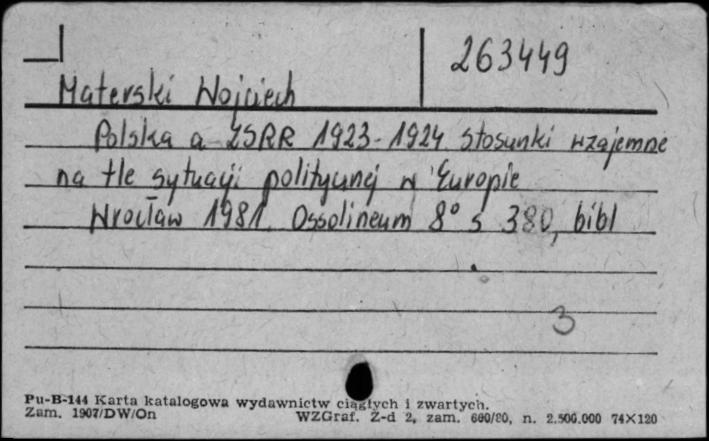 263449
Materski Wojciech
Polska a ZSRR 1923-1924 stosunki wzajemne
na tle sytuacji politycznej w Europie
Wrocław 1981. Ossolineum 8° s 380, bibl
3
Pu-B-144 Karta katalogowa wydawnictw ciągłych i zwartych.
Zam. 1907/DW/On WZGraf. Z-d 2, zam. 600/80, n. 2.500.000 74×120